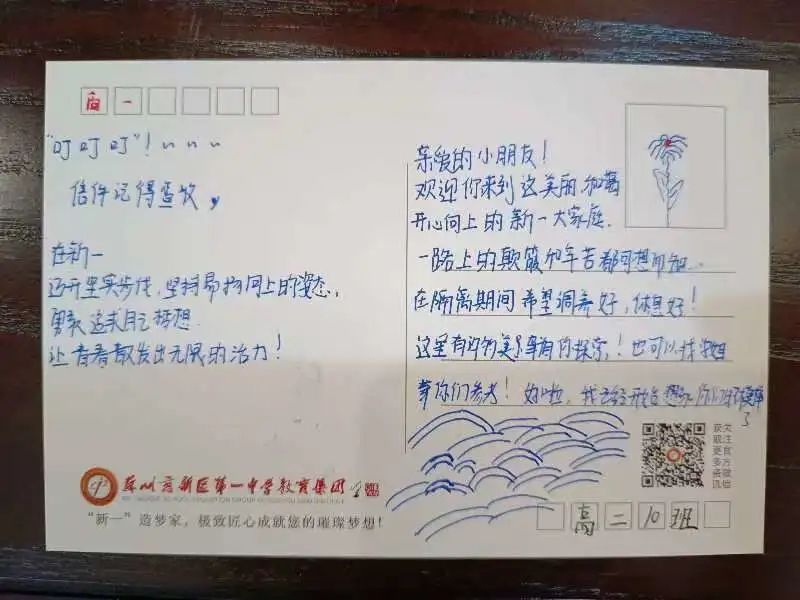 高 一
"叮叮叮"！~ ~ ~
信件记得查收，
在新一
迈开坚实步伐，坚持昂扬向上的姿态，
勇敢追求自己梦想.
让青春散发出无限的活力！
苏州高新区第一中学教育集团
"新一"造梦家，极致匠心成就您的璀璨梦想！
亲爱的小朋友！
欢迎你来到这美丽 和蔼
开心向上的新一大家庭.
一路上的颠簸和辛苦都可想而知...
在隔离期间 希望调养好，休息好！
这里有 美 等着你探索！也可以找
等你们参考！ 好啦，我已经开始想 你们
了
关注官方微信
获取更多资讯
高 二 10 班